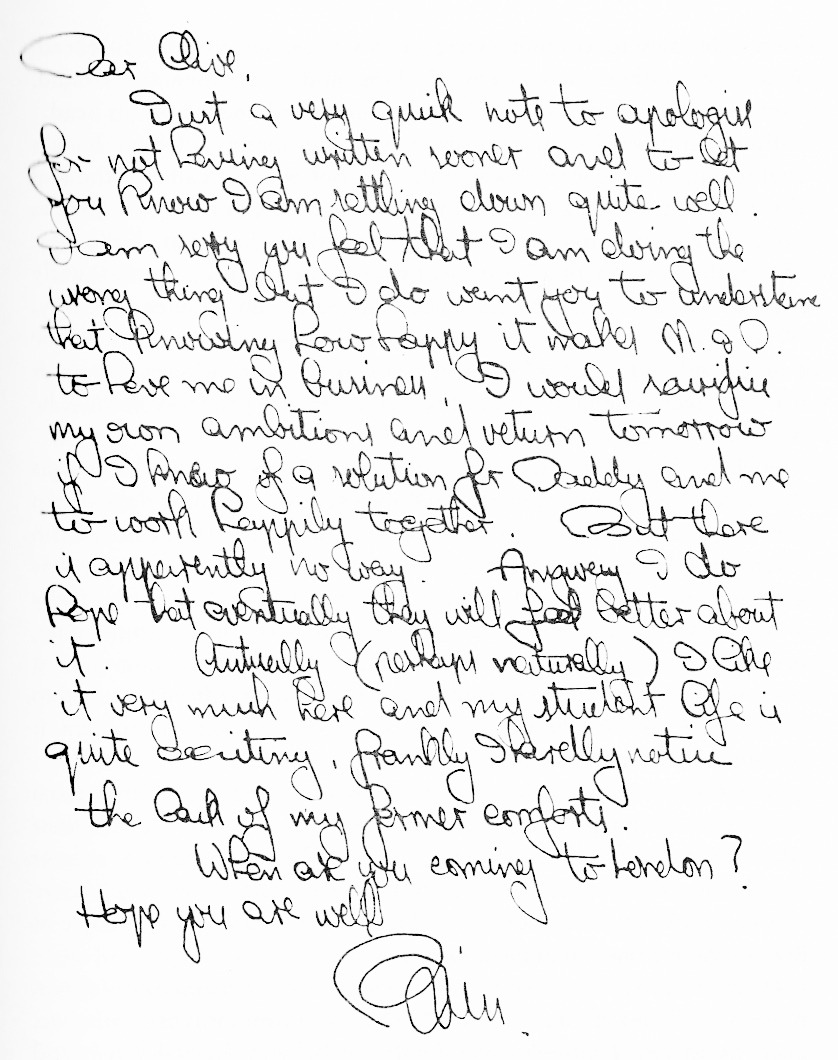 Dear Clive,
Just a very quick note to apologise
for not having written sooner and to let
you know I am settling down quite well.
I am sorry you feel that I am doing the
wrong thing but I do want you to understand
that knowing how happy it makes M. & D.
to have me in business, I would sacrifice
my own ambitions and return tomorrow
if I knew of a solution for Daddy and me
to work happily together. But there
is apparently no way. Anyway I do
hope that eventually they will feel better about
it. Actually (perhaps naturally) I like
it very much here and my student life is
quite exciting, frankly I hardly notice
the lack of my former comforts.
When are you coming to London?
Hope you are well